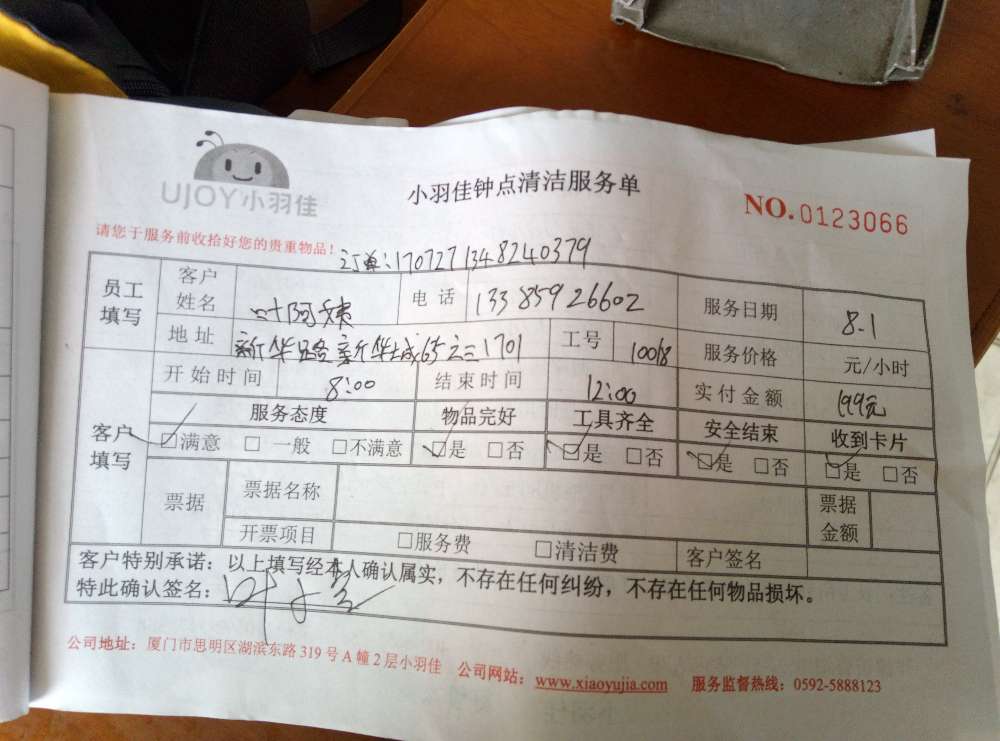 UJOY小羽佳
小羽佳钟点清洁服务单
NO.0123066
请您于服务前收拾好您的贵重物品！
订单:1707271348240379
员工填写 客户姓名 叶阿姨 电话 13385926602 服务日期 8.1
地址 新华路新华城65之三1701 工号 10018 服务价格 元/小时
开始时间 8:00 结束时间 12:00 实付金额 199元
客户填写 服务态度 物品完好 工具齐全 安全结束 收到卡片
☑满意 □一般 □不满意 ☑是 □否 ☑是 □否 ☑是 □否 ☑是 □否
票据 票据名称 票据金额
开票项目 □服务费 □清洁费 客户签名
客户特别承诺：以上填写经本人确认属实，不存在任何纠纷，不存在任何物品损坏。
特此确认签名：
公司地址：厦门市思明区湖滨东路319号A幢2层小羽佳 公司网站：www.xiaoyujia.com 服务监督热线：0592-5888123